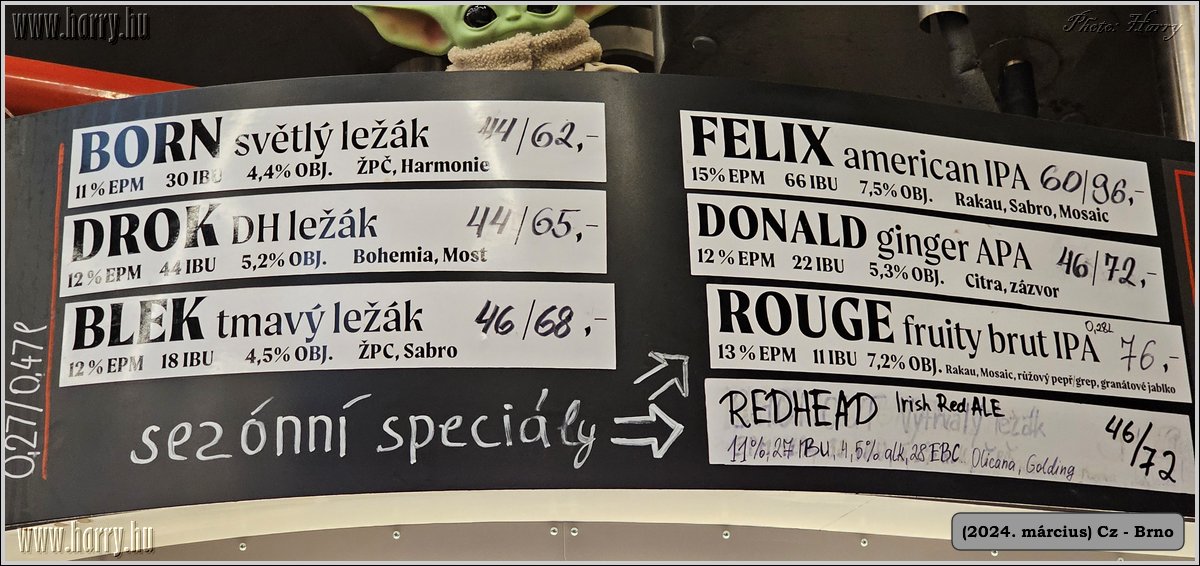 www.harry.hu
Photo: Harry
BORN světlý ležák 44/62,-
11% EPM 30 IBU 4,4% OBJ. ŽPČ, Harmonie
DROK DH ležák 44/65,-
12% EPM 44 IBU 5,2% OBJ. Bohemia, Most
BLEK tmavý ležák 46/68,-
12% EPM 18 IBU 4,5% OBJ. ŽPČ, Sabro
0,27/0,47l
sezónní speciály
FELIX american IPA 60/96,-
15% EPM 66 IBU 7,5% OBJ. Rakau, Sabro, Mosaic
DONALD ginger APA 46/72,-
12% EPM 22 IBU 5,3% OBJ. Citra, zázvor
ROUGE fruity brut IPA 0,28L 76,-
13% EPM 11 IBU 7,2% OBJ. Rakau, Mosaic, růžový pepř/grep, granátové jablko
REDHEAD Irish Red ALE 46/72
11%, 27 IBU, 4,5% alk, 28 EBC Oličana, Golding
www.harry.hu
(2024. március) Cz - Brno